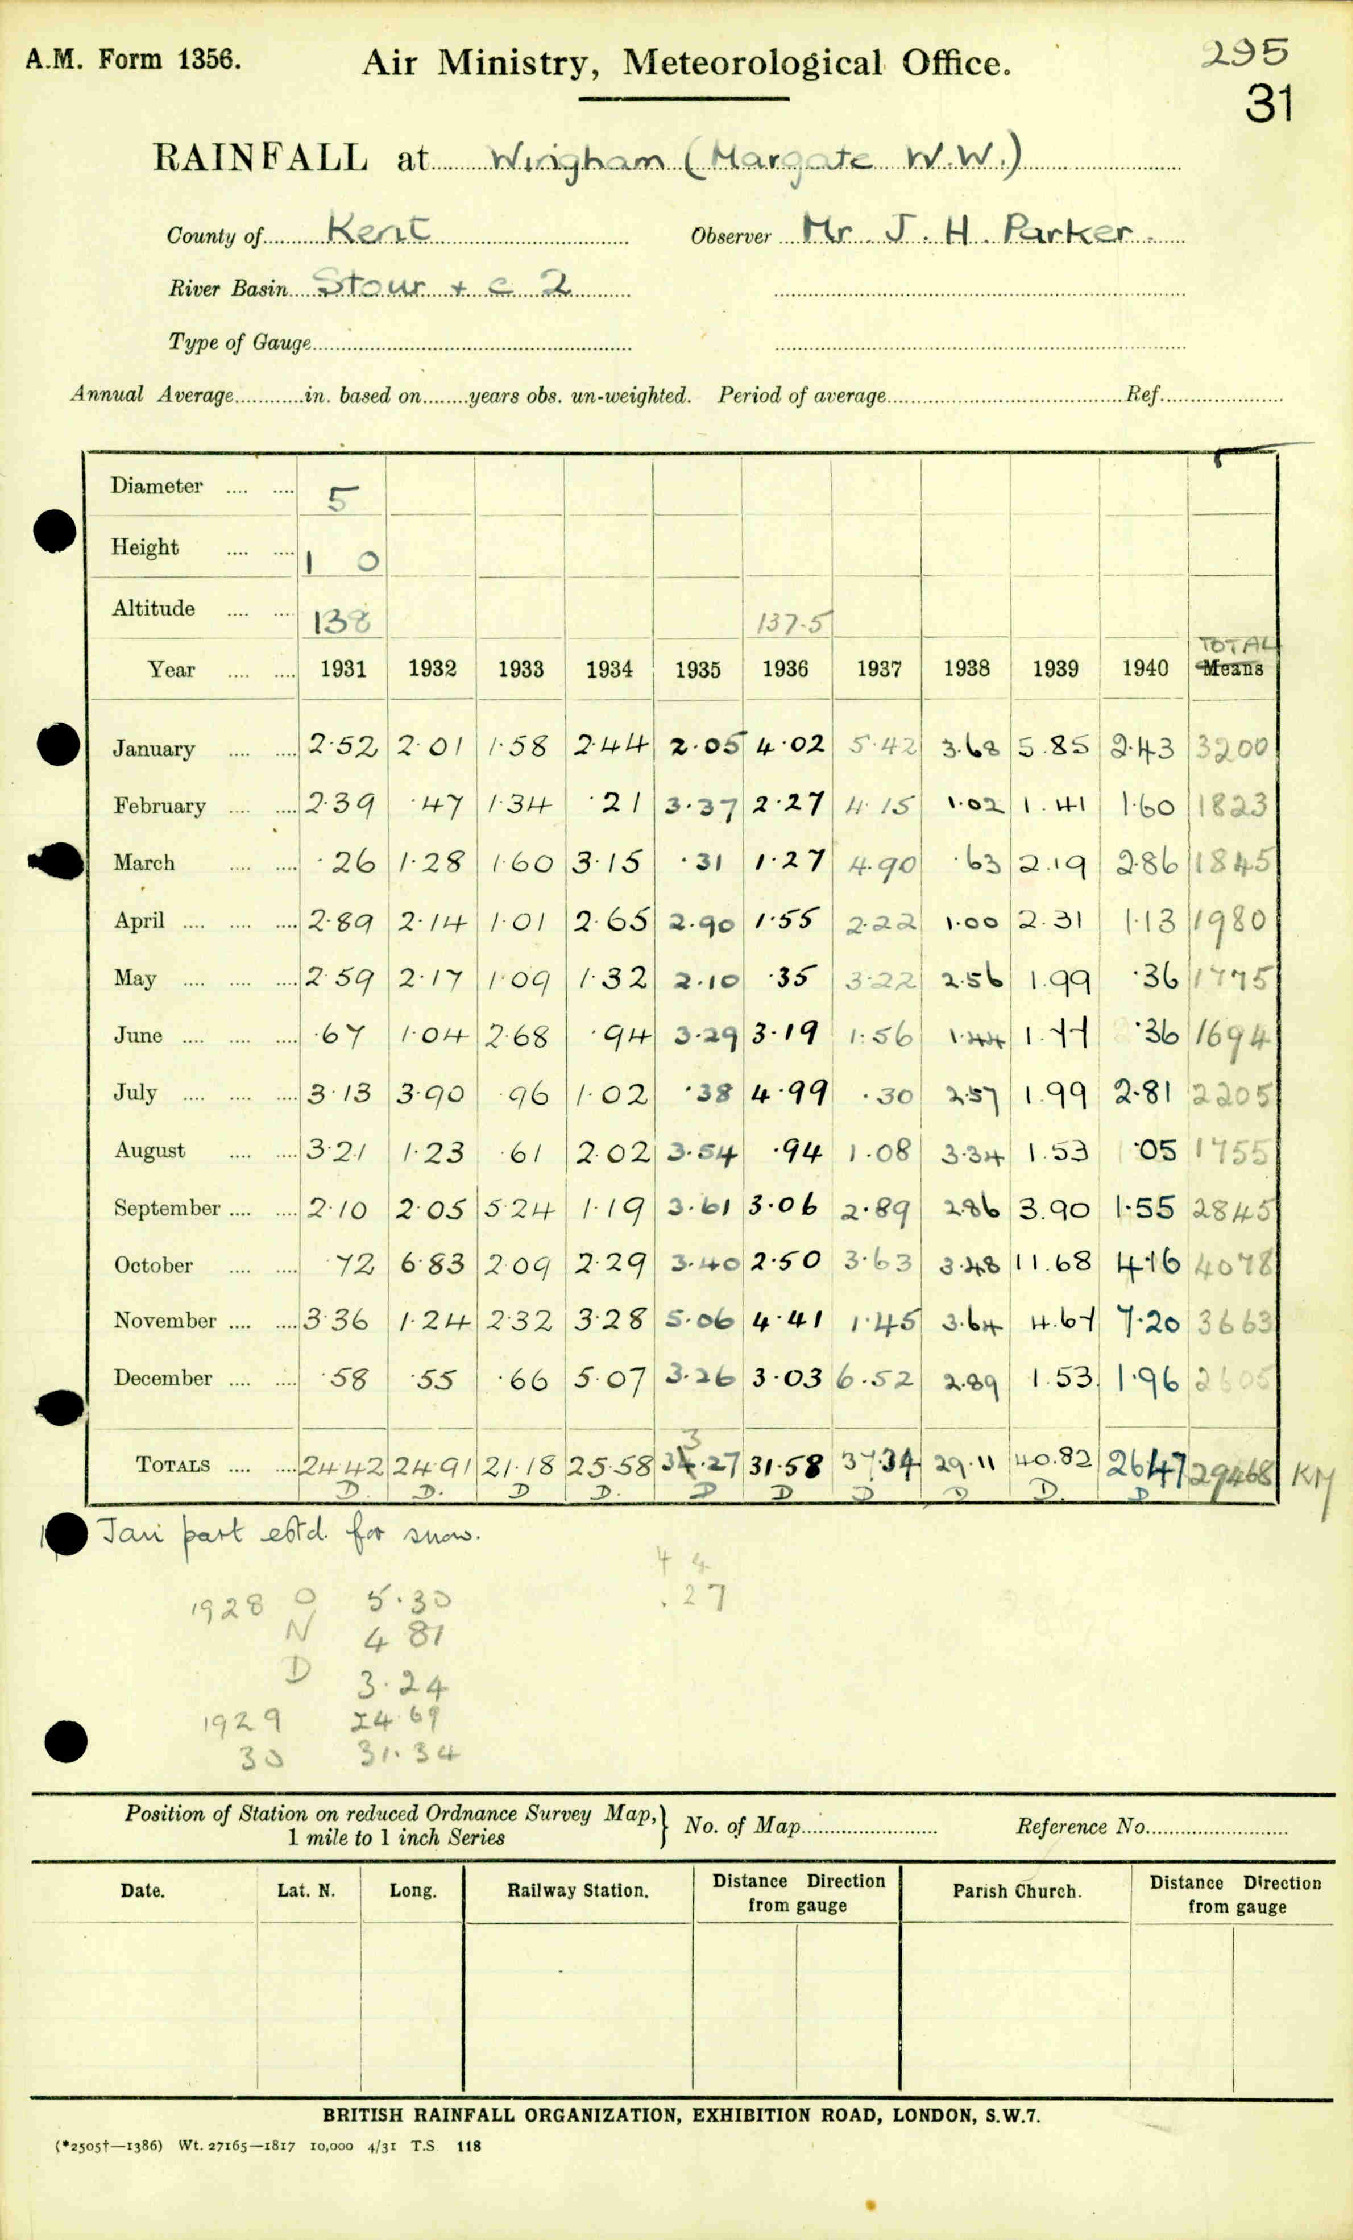 A.M. Form 1356.
Air Ministry, Meteorological Office.
295
31
RAINFALL at Wingham (Margate W.W.)
County of Kent Observer Mr. J. H. Parker.
River Basin Stour + c 2
Type of Gauge
Annual Average in. based on years obs. un-weighted. Period of average Ref.
Diameter 5
Height 1 0
Altitude 138 137.5
TOTAL
Year 1931 1932 1933 1934 1935 1936 1937 1938 1939 1940 Means
January 2.52 2.01 1.58 2.44 2.05 4.02 5.42 3.68 5.85 2.43 3200
February 2.39 .47 1.34 .21 3.37 2.27 4.15 1.02 1.41 1.60 1823
March .26 1.28 1.60 3.15 .31 1.27 4.90 .63 2.19 2.86 1845
April 2.89 2.14 1.01 2.65 2.90 1.55 2.22 1.00 2.31 1.13 1980
May 2.59 2.17 1.09 1.32 2.10 .35 3.22 2.56 1.99 .36 1775
June .67 1.04 2.68 .94 3.29 3.19 1.56 1.44 1.77 .36 1694
July 3.13 3.90 .96 1.02 .38 4.99 .30 2.57 1.99 2.81 2205
August 3.21 1.23 .61 2.02 3.54 .94 1.08 3.34 1.53 .05 1755
September 2.10 2.05 5.24 1.19 3.61 3.06 2.89 2.86 3.90 1.55 2845
October .72 6.83 2.09 2.29 3.40 2.50 3.63 3.48 11.68 4.16 4078
November 3.36 1.24 2.32 3.28 5.06 4.41 1.45 3.64 4.67 7.20 3663
December .58 .55 .66 5.07 3.26 3.03 6.52 2.89 1.53 1.96 2605
3
TOTALS 24.42 24.91 21.18 25.58 34.27 31.58 37.34 29.11 40.82 26.47 29468 KM
D. D. D D. D D D D D. D
Jan part estd. for snow.
4 4
.27
1928 O 5.30
N 4 81
D 3.24
1929 24.69
30 31.34
Position of Station on reduced Ordnance Survey Map,} No. of Map Reference No.
1 mile to 1 inch Series
Date. Lat. N. Long. Railway Station. Distance Direction from gauge Parish Church. Distance Direction from gauge
BRITISH RAINFALL ORGANIZATION, EXHIBITION ROAD, LONDON, S.W.7.
(*2505†—1386) Wt. 27165—1817 10,000 4/31 T.S 118